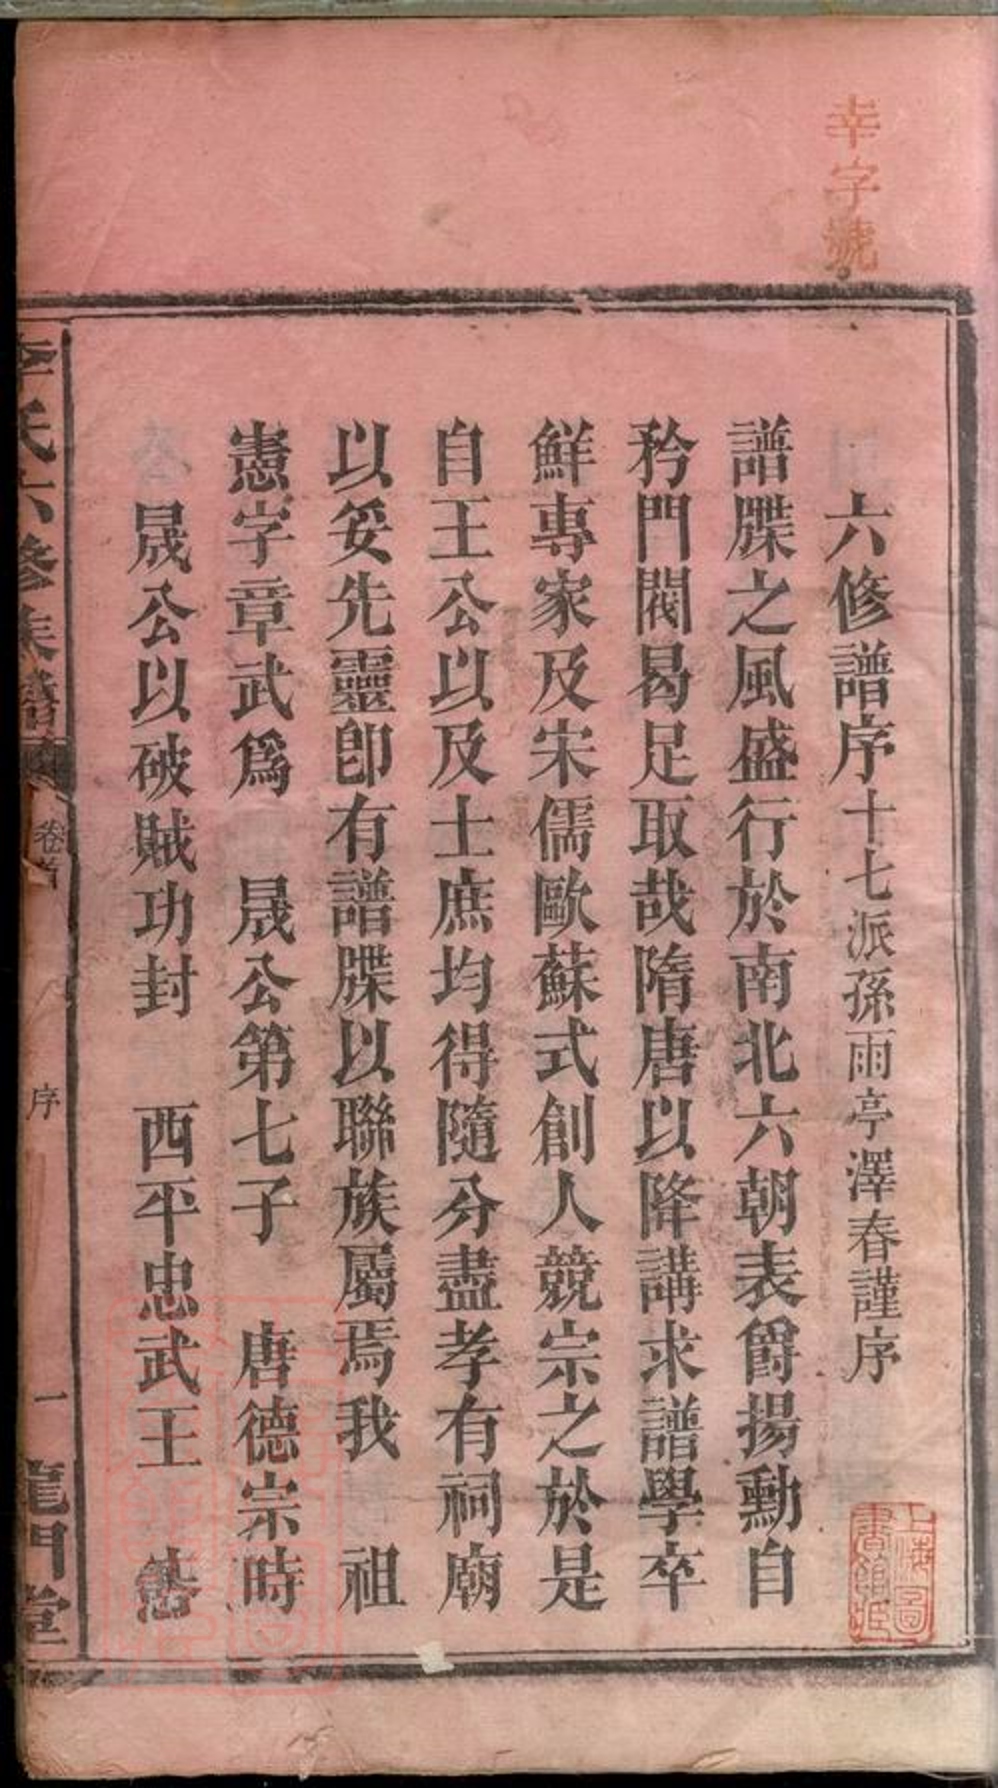 幸字號
六修譜序十七派孫雨亭澤春謹序
譜牒之風盛行於南北六朝表爵揚勳自
矜門閥曷足取哉隋唐以降講求譜學卒
鮮專家及宋儒歐蘇式創人競宗之於是
自王公以及士庶均得隨分盡孝有祠廟
以妥先靈卽有譜牒以聯族屬焉我 祖
憲字章武爲 晟公第七子 唐德宗時
晟公以破賊功封 西平忠武王
李氏六修族譜 卷首 序 一 龍門堂
上海圖
書館藏